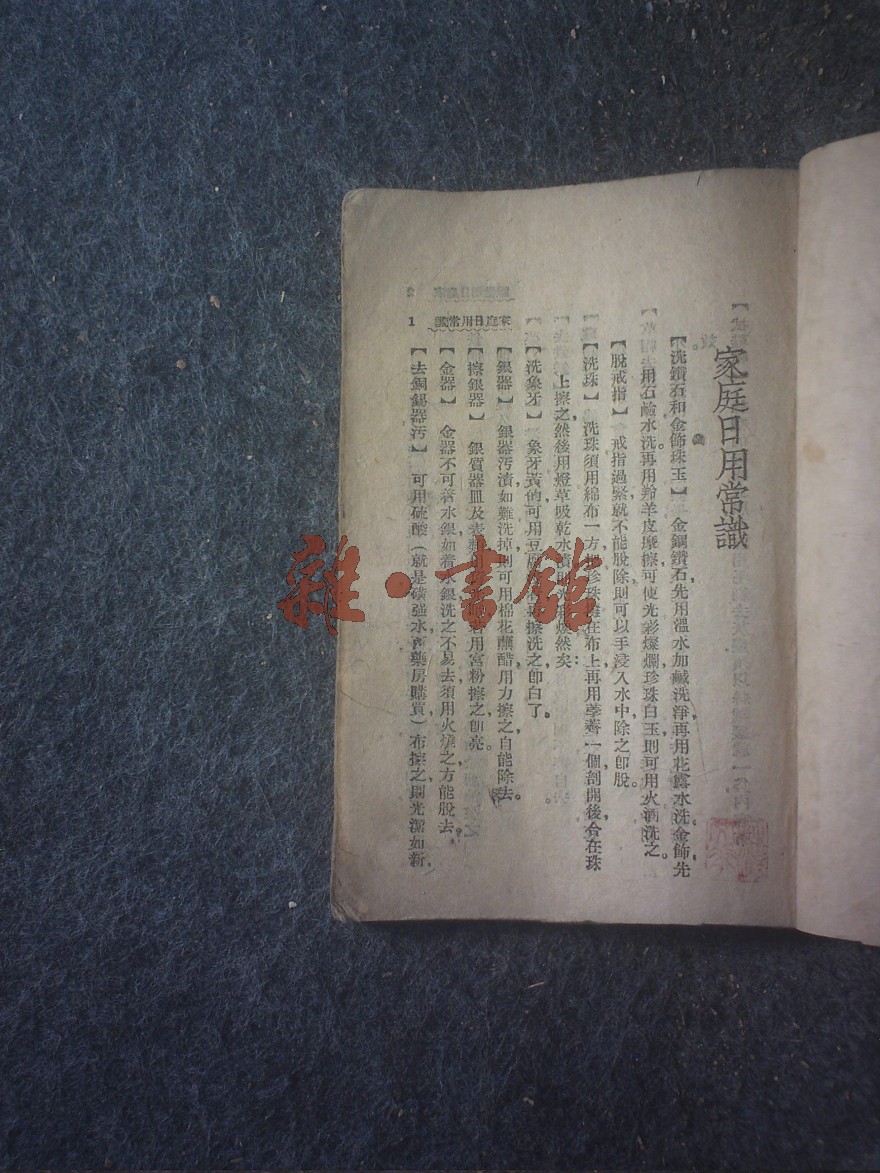 家庭日用常識
【洗鑽石和金飾珠玉】 金鋼鑽石先用溫水加鹹洗淨再用花露水洗金飾先
用石鹼水洗再用羚羊皮摩擦可使光彩燦爛珍珠白玉則可用火酒洗之。
【脫戒指】 戒指過緊就不能脫除則可以手浸入水中除之卽脫。
【洗珠】 洗珠須用綿布一方把珍珠 在布上再用荸薺一個剖開後合在珠
上擦之然後用燈草吸乾水漬 煥然矣
【洗象牙】 象牙黃的可用豆 擦洗之卽白了。
【銀器】 銀器污漬如難洗掉則可用棉花蘸醋用力擦之自能除去。
【擦銀器】 銀質器皿及表 用宮粉擦之卽亮。
【金器】 金器不可着水銀如着水銀洗之不易去須用火燒之方能脫去。
【去銅錫器污】 可用硫酸(就是磺强水西藥房購買)布擦之則光潔如新
家庭日用常識 1
雜·書館